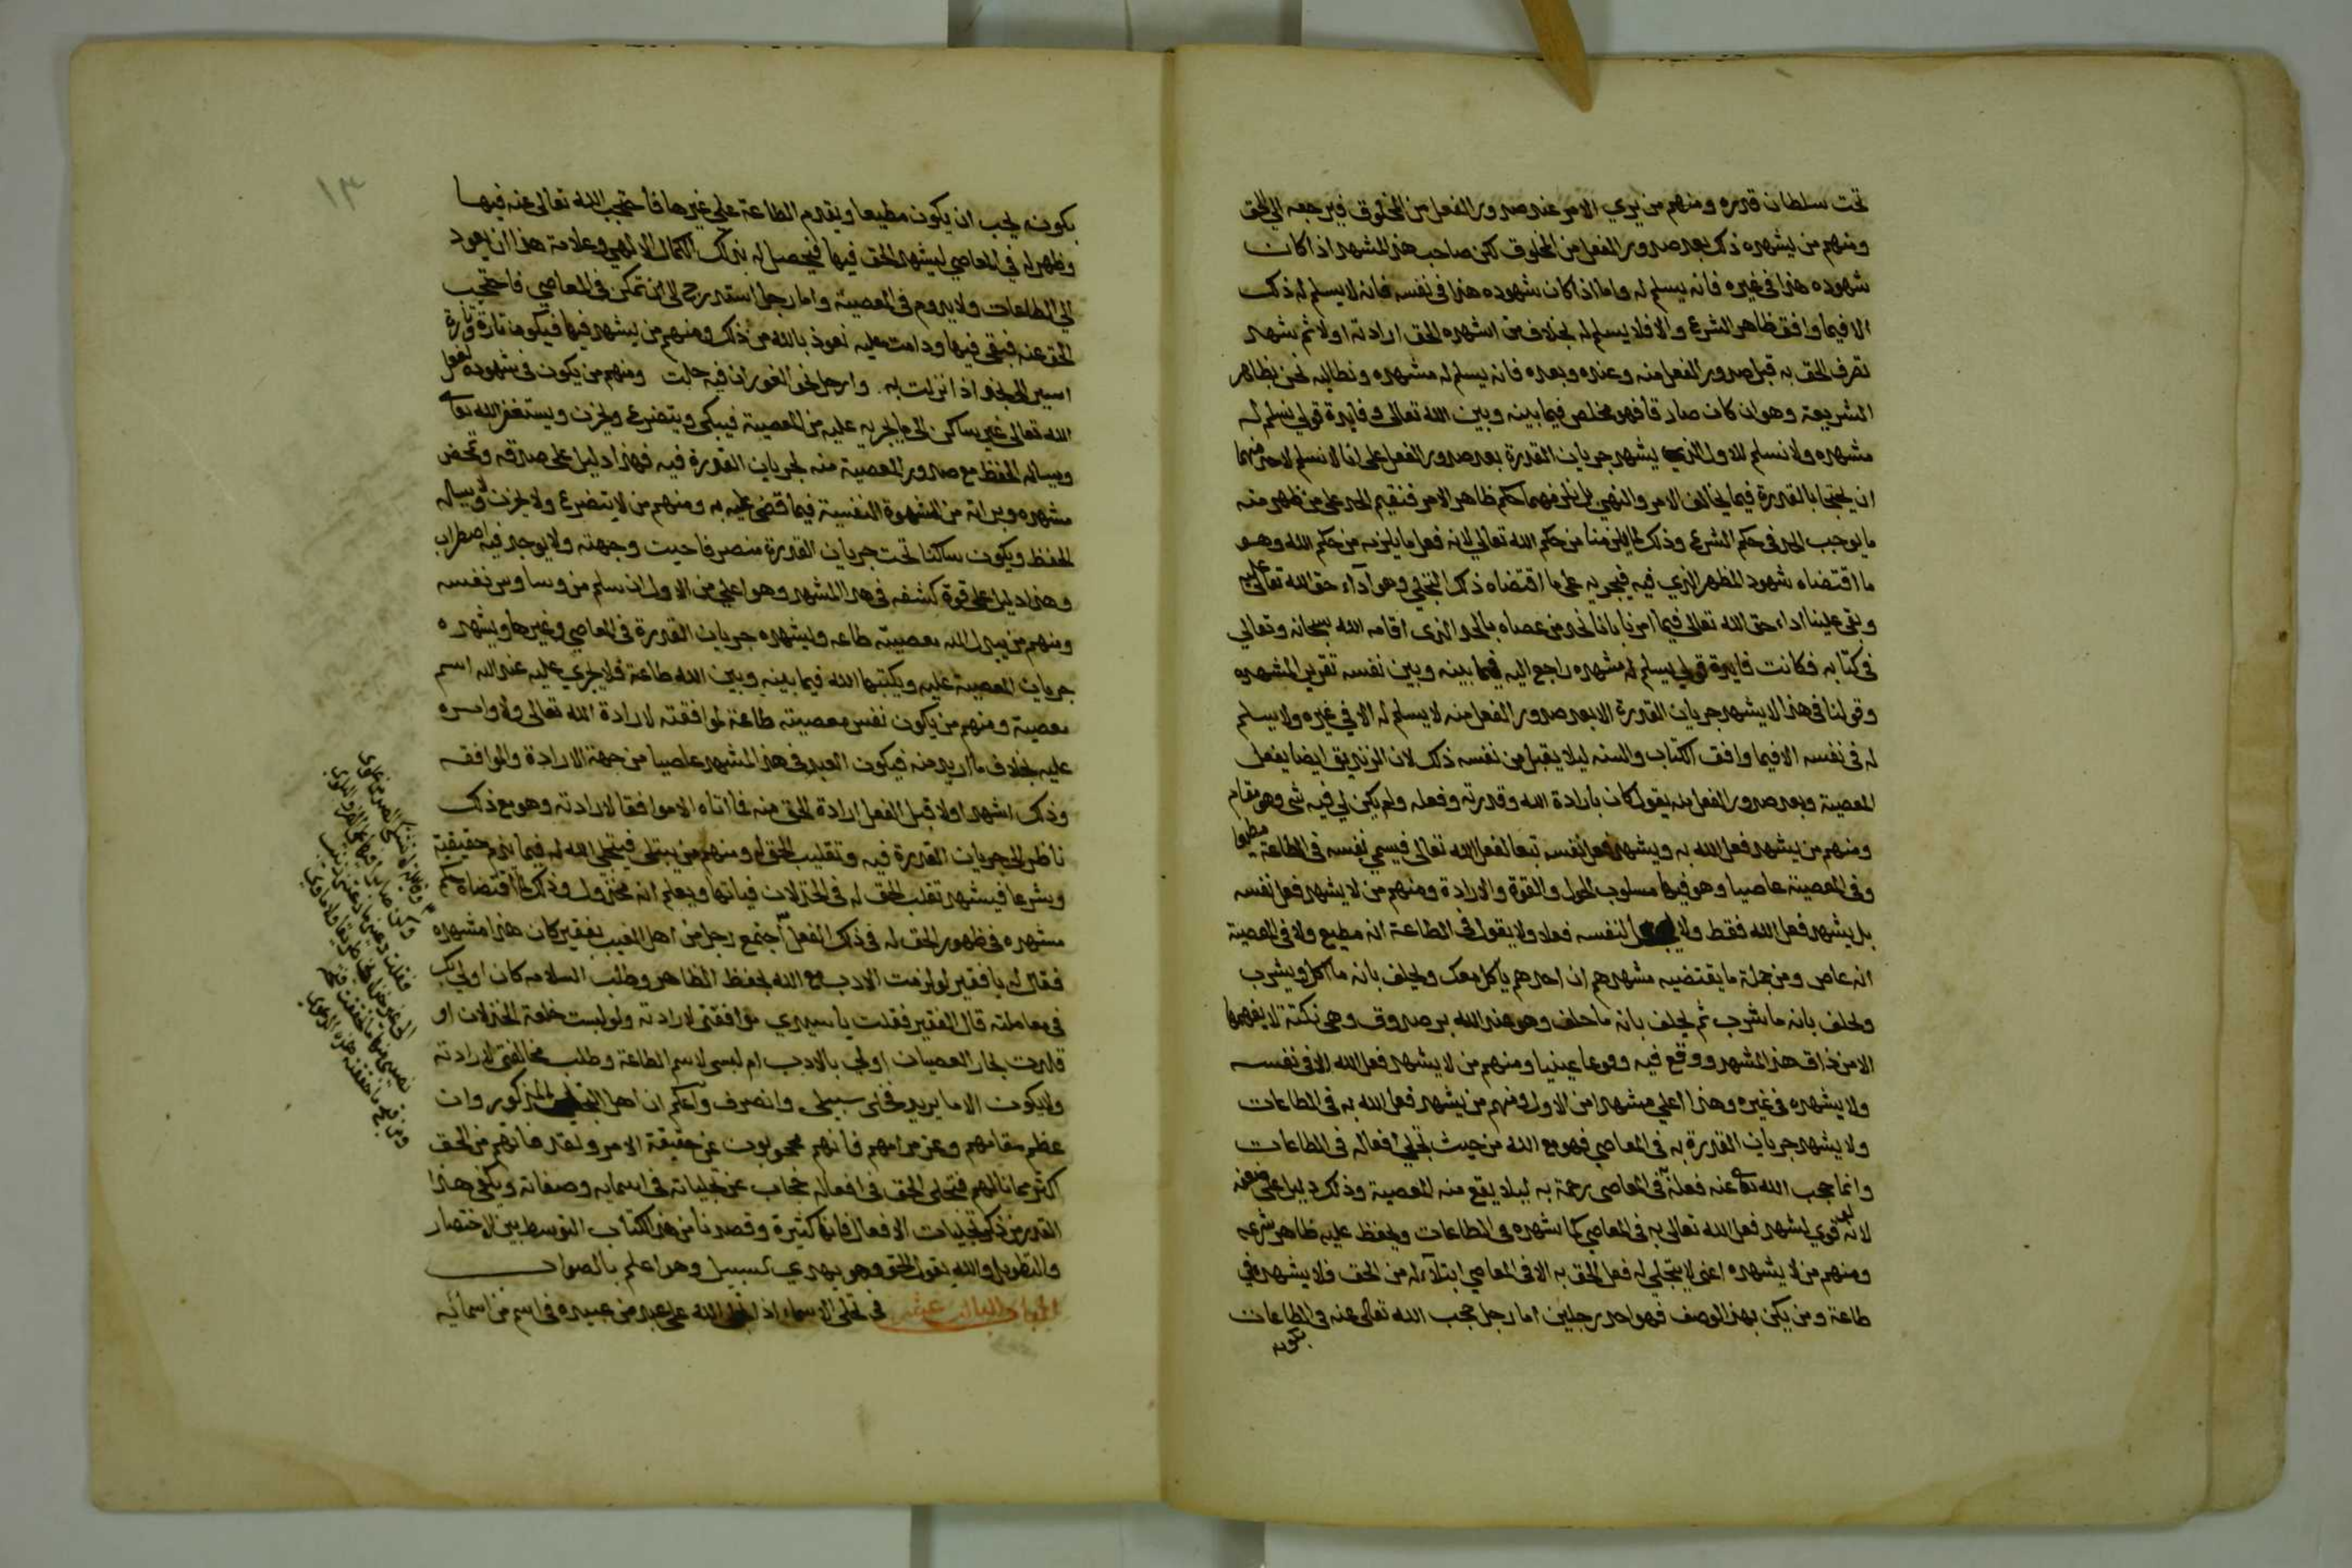 تحت سلطان قدره ومنهم من يري الامر عند صدور الفعل من المخلوق فيرجعه الي الحق
ومنهم من يشهده ذلك بعد صدور الفعل من المخلوق لكن صاحب هذا المشهد اذا كان
شهوده هذا في غيره فانه يسلم له واما اذا كان شهوده هذا في نفسه فانه لا يسلم له ذلك
الا فيما وافق ظاهر الشرع والا فلا يسلم له بخلاف من اشهده الحق ارادته اولا ثم شهد
تصرف الحق به قبل صدور الفعل منه وعنده وبعده فانه يسلم له مشهده ونطالبه نحن بظاهر
الشريعة وهو ان كان صادقا فهو مخلص فيما بينه وبين الله تعالى وفايدة قولي نسلم له
مشهده ولا نسلم للاول الذي يشهد جريان القدرة بعد صدور الفعل على انا لا نسلم لاحد منهما
ان يحتجا بالقدرة فيما يخالف الامر والنهي بل نلزمهما حكم ظاهر الامر فنقيم الحد على من ظهر منه
ما يوجب الحد في حكم الشرع وذلك لما يلزمنا من حكم الله تعالي لانه فعل ما يلزمه من حكم الله وهو
ما اقتضاه شهود المظهر الذي فيه فيجريه على ما اقتضاه ذلك التجلي وهو آداء حق الله تعالى عليه
وبقى علينا اداء حق الله تعالى فيما امرنا بانا نحد من عصاه بالحد الذي اقامه الله سبحانه وتعالي
في كتابه فكانت فايدة قولي يسلم له مشهده راجع اليه فيما بينه وبين نفسه تقرير المشهده
وقولنا في هذا لا يشهد جريان القدرة الا بعد صدور الفعل منه لا يسلم له الا في غيره ولا يسلم
له في نفسه الا فيما وافق الكتاب والسنه ليلا يقبل من نفسه ذلك لان الزنديق ايضا يفعل
المعصية وبعد صدور الفعل منه يقول كان بارادة الله وقدرته وفعله ولم يكن لي فيه شى وهو مقام
ومنهم من يشهد فعل الله به ويشهد فعل نفسه تبعا لفعل الله تعالى فيسمي نفسه في الطاعة مطيعا
وفي المعصية عاصيا وهو فيها مسلوب الحول والقوة والارادة ومنهم من لا يشهد فعل نفسه
بل يشهد فعل الله فقط ولا يجعل لنفسه فعلا ولا يقول في الطاعة انه مطيع ولا في المعصية
انه عاص ومن جملة ما يقتضيه مشهدهم ان احدهم ياكل معك ويحلف بانه ما اكل ويشرب
ويحلف بانه ما شرب ثم يحلف بانه ما حلف وهو عند الله بر صدوق وهي نكتة لا يفهمها
الا من ذاق هذا المشهد ووقع فيه وقوعا عينيا ومنهم من لا يشهد فعل الله الا في نفسه
ولا يشهده في غيره وهذا اعلي مشهدا من الاول ومنهم من يشهد فعل الله به في الطاعات
ولا يشهد جريان القدرة به في المعاصي فهو مع الله من حيث تجلي افعاله في الطاعات
وانما حجب الله تعالى عنه فعله في المعاصي رحمة به ليلا يقع منه المعصية وذلك دليل على ضعفه
لانه لو قوي لشهد فعل الله تعالى به في المعاصي كما شهده في الطاعات ويحفظ عليه ظاهر شرعه
ومنهم من لا يشهده اعنى لا يتجلي له فعل الحق به الا في المعاصي ابتلآء له من الحق فلا يشهده في
طاعة ومن يكن بهذا الوصف فهو احد رجلين اما رجل حجب الله تعالى عنه في الطاعات
بكونه
١٣
بكونه يحب ان يكون مطيعا ويقدم الطاعة علي غيرها فاحتجب الله تعالى عنه فيها
وظهر له في المعاصي ليشهد الحق فيها فيحصل له بذلك الكمال الالهي وعلامة هذا ان يعود
الي الطاعات ولا يدوم في المعصية واما رجل استدرج الى ان تمكن في المعاصي فاحتجب
الحق عنه فبقى فيها ودامت عليه نعوذ بالله من ذلك ومنهم من يشهد فيها فيكون تارة وتارة
اسير الى نجد اذا نزلت به وارحل نحو الغور ان فيه حلت ومنهم من يكون في شهوده لفعل
الله تعالى غير ساكن الى ما يجريه عليه من المعصية فيبكي ويتضرع ويحزن ويستغفر الله تعالى
ويساله الحفظ مع صدور المعصية منه لجريان القدرة فيه فهذا دليل على صدقه وتمحض
مشهده وبراته من الشهوة النفسية فيما قضي عليه به ومنهم من لا يتضرع ولا يحزن ولا يساله
الحفظ ويكون ساكنا تحت جريان القدرة منصرفا حيث وجهته ولا يوجد فيه اضطراب
وهذا دليل على قوة كشفه في هذا المشهد وهو اعلي من الاول ان سلم من وساوس نفسه
ومنهم من يبدل الله معصيته طاعه وليشهده جريان القدرة في المعاصي وغيرها ويشهده
جريان المعصية عليه ويكتبها الله فيما بينه وبين الله طاعة فلا يجري عليه عند الله اسم
معصية ومنهم من يكون نفس معصيته طاعة لموافقته لارادة الله تعالى ولا وامره
عليه بخلاف ما اريد منه فيكون العبد في هذا المشهد عاصيا من جهة الارادة والموافقه
وذلك اشهد اولا قبل الفعل ارادة الحق منه فما اتاه الا موافقا لارادته وهو مع ذلك
ناظر الى جريان القدرة فيه وتقليب الحق له ومنهم من يبتلى فيتجلي الله له فيما يذم حقيقية
وشرعا فيشهد تقلب الحق له في الخذلان فياتها ويعلم انه مخذول وذلك لما اقتضاه حكم
مشهده في ظهور الحق له في ذلك الفعل اجتمع رجل من اهل الغيب بفقير كان هذا مشهده
فقال له يا فقير لو لزمت الادب مع الله بحفظ الظاهر وطلب السلامه كان اولي بك
في معاملته قال الفقير فقلت يا سيدي موافقتي لارادته ولو لبست خلعة الخذلان او
قلدت نجار العصيان اولي بالادب ام لبسي لاسم الطاعة وطلب مخالفتي لارادته
ولا يكون الا ما يريد فخلى سبيلي وانصرف واعلم ان اهل التجلي المذكور وان
عظم مقامهم وعز مرامهم فانهم محجوبون عن حقيقة الامر ولقد فاتهم من الحق
اكثر مما نالهم فتجلي الحق في افعاله حجاب عن تجلياته في اسمايه وصفاته ويكفي هذا
القدر من ذكر تجليات الافعال فانها كثيرة وقصدنا من هذا الكتاب التوسط بين الاختصار
والتطويل والله يقول الحق وهو يهدي السبيل وهو اعلم بالصواب
الباب الثالث عشر في تجلى الاسماء اذا تجلى الله على عبد من عبيده في اسم من اسمائه